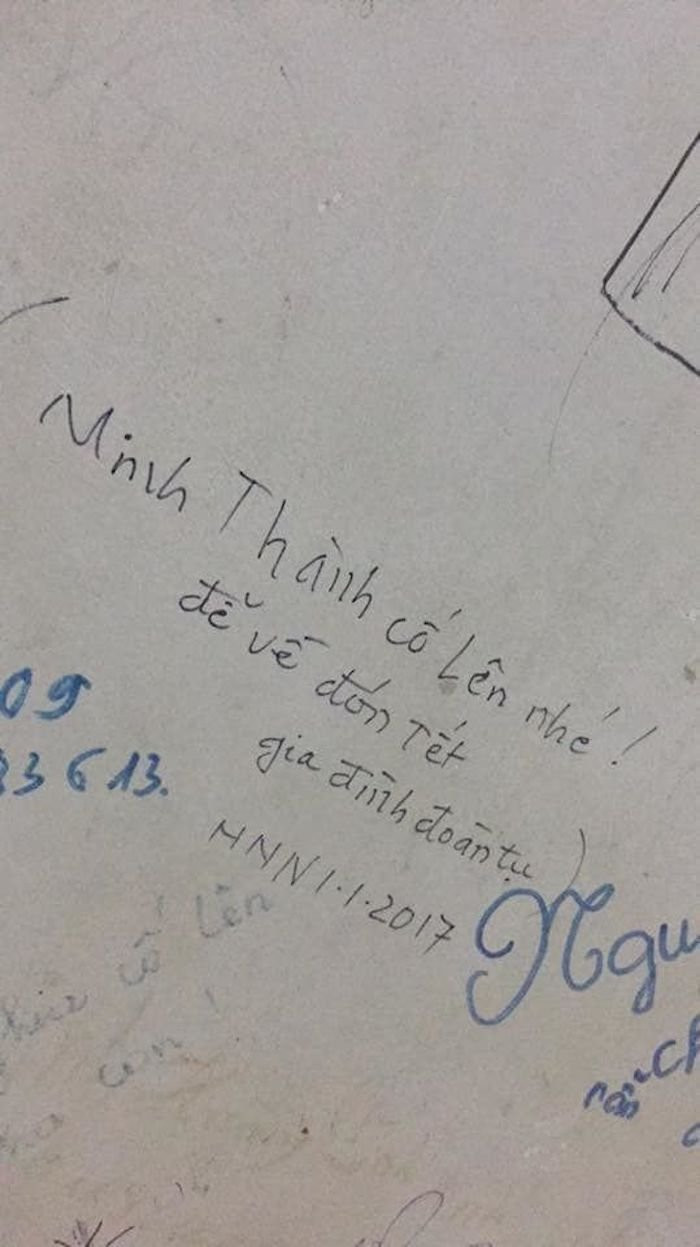 Minh Thành cố lên nhé!
để về đón Tết
gia đình đoàn tụ
HNN 1.1.2017
09
3613.
cố lên
con!
Ngu